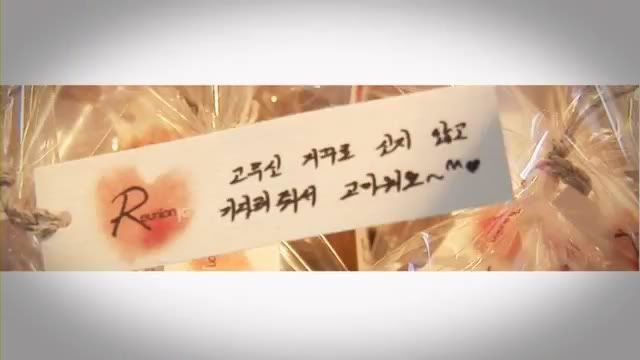 Reunion
고무신 거꾸로 신지 않고
기다려줘서 고마워요~^^♥